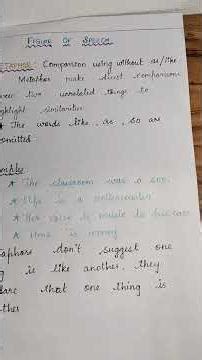 FIGURE OF SPEECH
METAPHOR: Comparison using without as/like
Metaphor make direct comparison
two unrelated things to
highlight similarities
* The words like, as, so are
omitted
* The classroom was a zoo
* Life is a rollercoaster
* Her voice is music to his ears
* Time is money
taphors don't suggest one
is like another, they
that one thing is